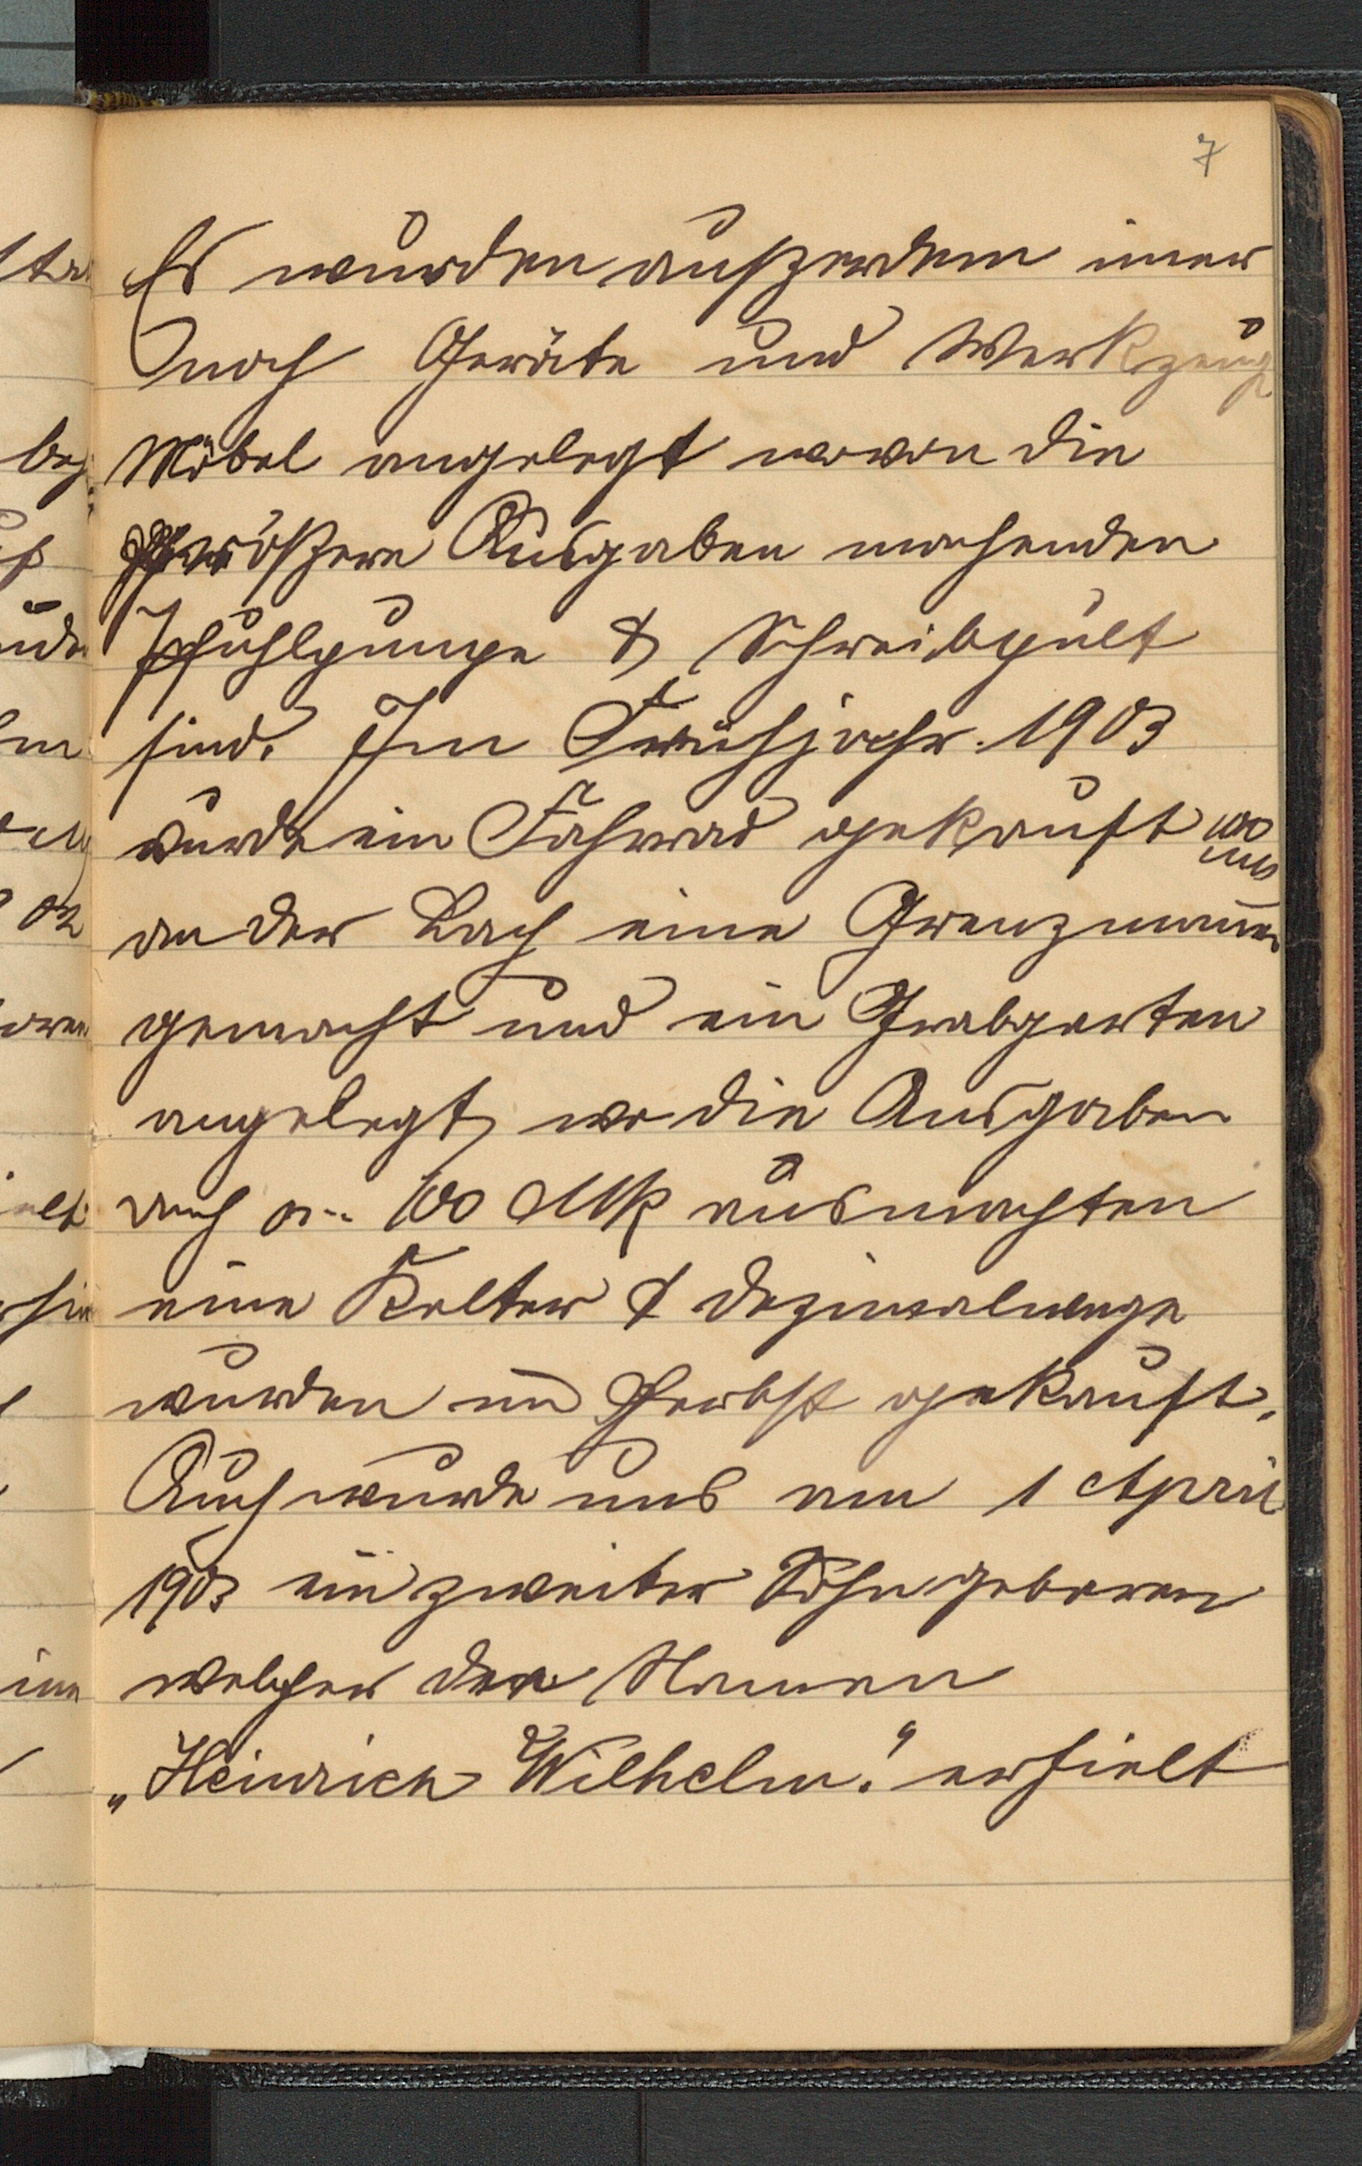 7
Es wurden außerdem imer
noch Geräte und Werkzeug
Möbel angelegt wovon die
größere Ausgaben machenden
Pfuhlpumpe & Schreibpult
sind. Im Frühjahr 1903
wurde ein Fahrrad gekauft 100
an der Bach eine Grenzmauer
gemacht und ein Grabgarten
angelegt, wo die Ausgaben
auch 100 Mk ausmachten
eine Kelter & Dezimalwage
wurden im Herbst gekauft.
Auch wurde uns am 1 April
1903 ein zweiter Sohn geboren
welcher den Namen
„Heinrich Wilhelm." erhielt